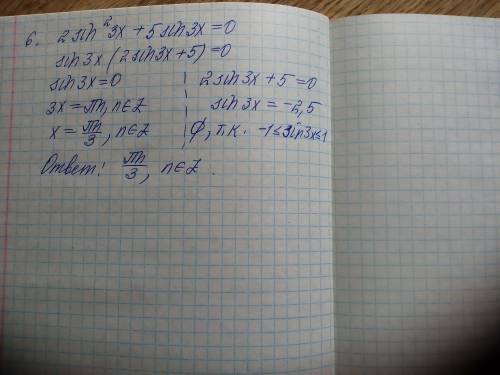 6. 2sin²3x + 5sin3x = 0
sin3x (2sin3x + 5) = 0
sin3x = 0 2sin3x + 5 = 0
3x = πn, n∈Z sin3x = -2,5
x = πn/3, n∈Z ∅, т.к. -1≤sin3x≤1
Ответ: πn/3, n∈Z.